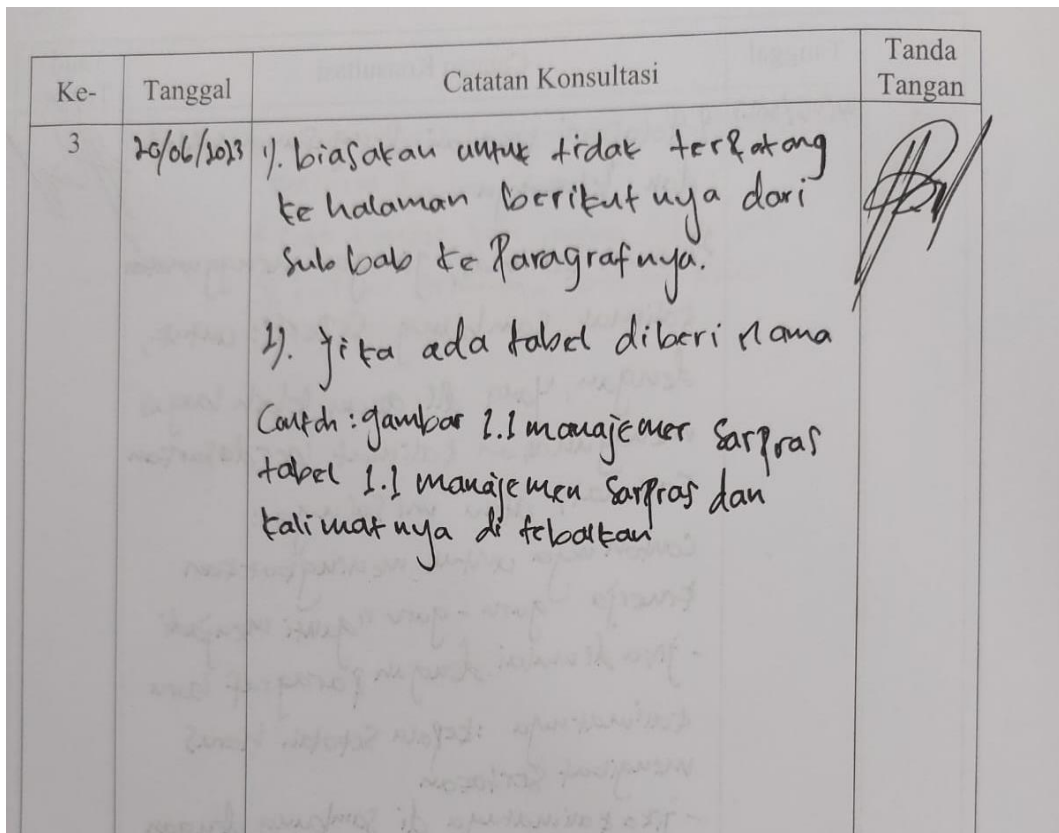 Ke- Tanggal Catatan Konsultasi Tanda Tangan
3 20/06/2023 1). biasakan untuk tidak terpotong
ke halaman berikutnya dari
Sub bab ke Paragrafnya.
2). Jika ada tabel diberi nama
Contoh : gambar 1.1 manajemen Sarpras
tabel 1.1 manajemen Sarpras dan
kalimatnya di tebalkan